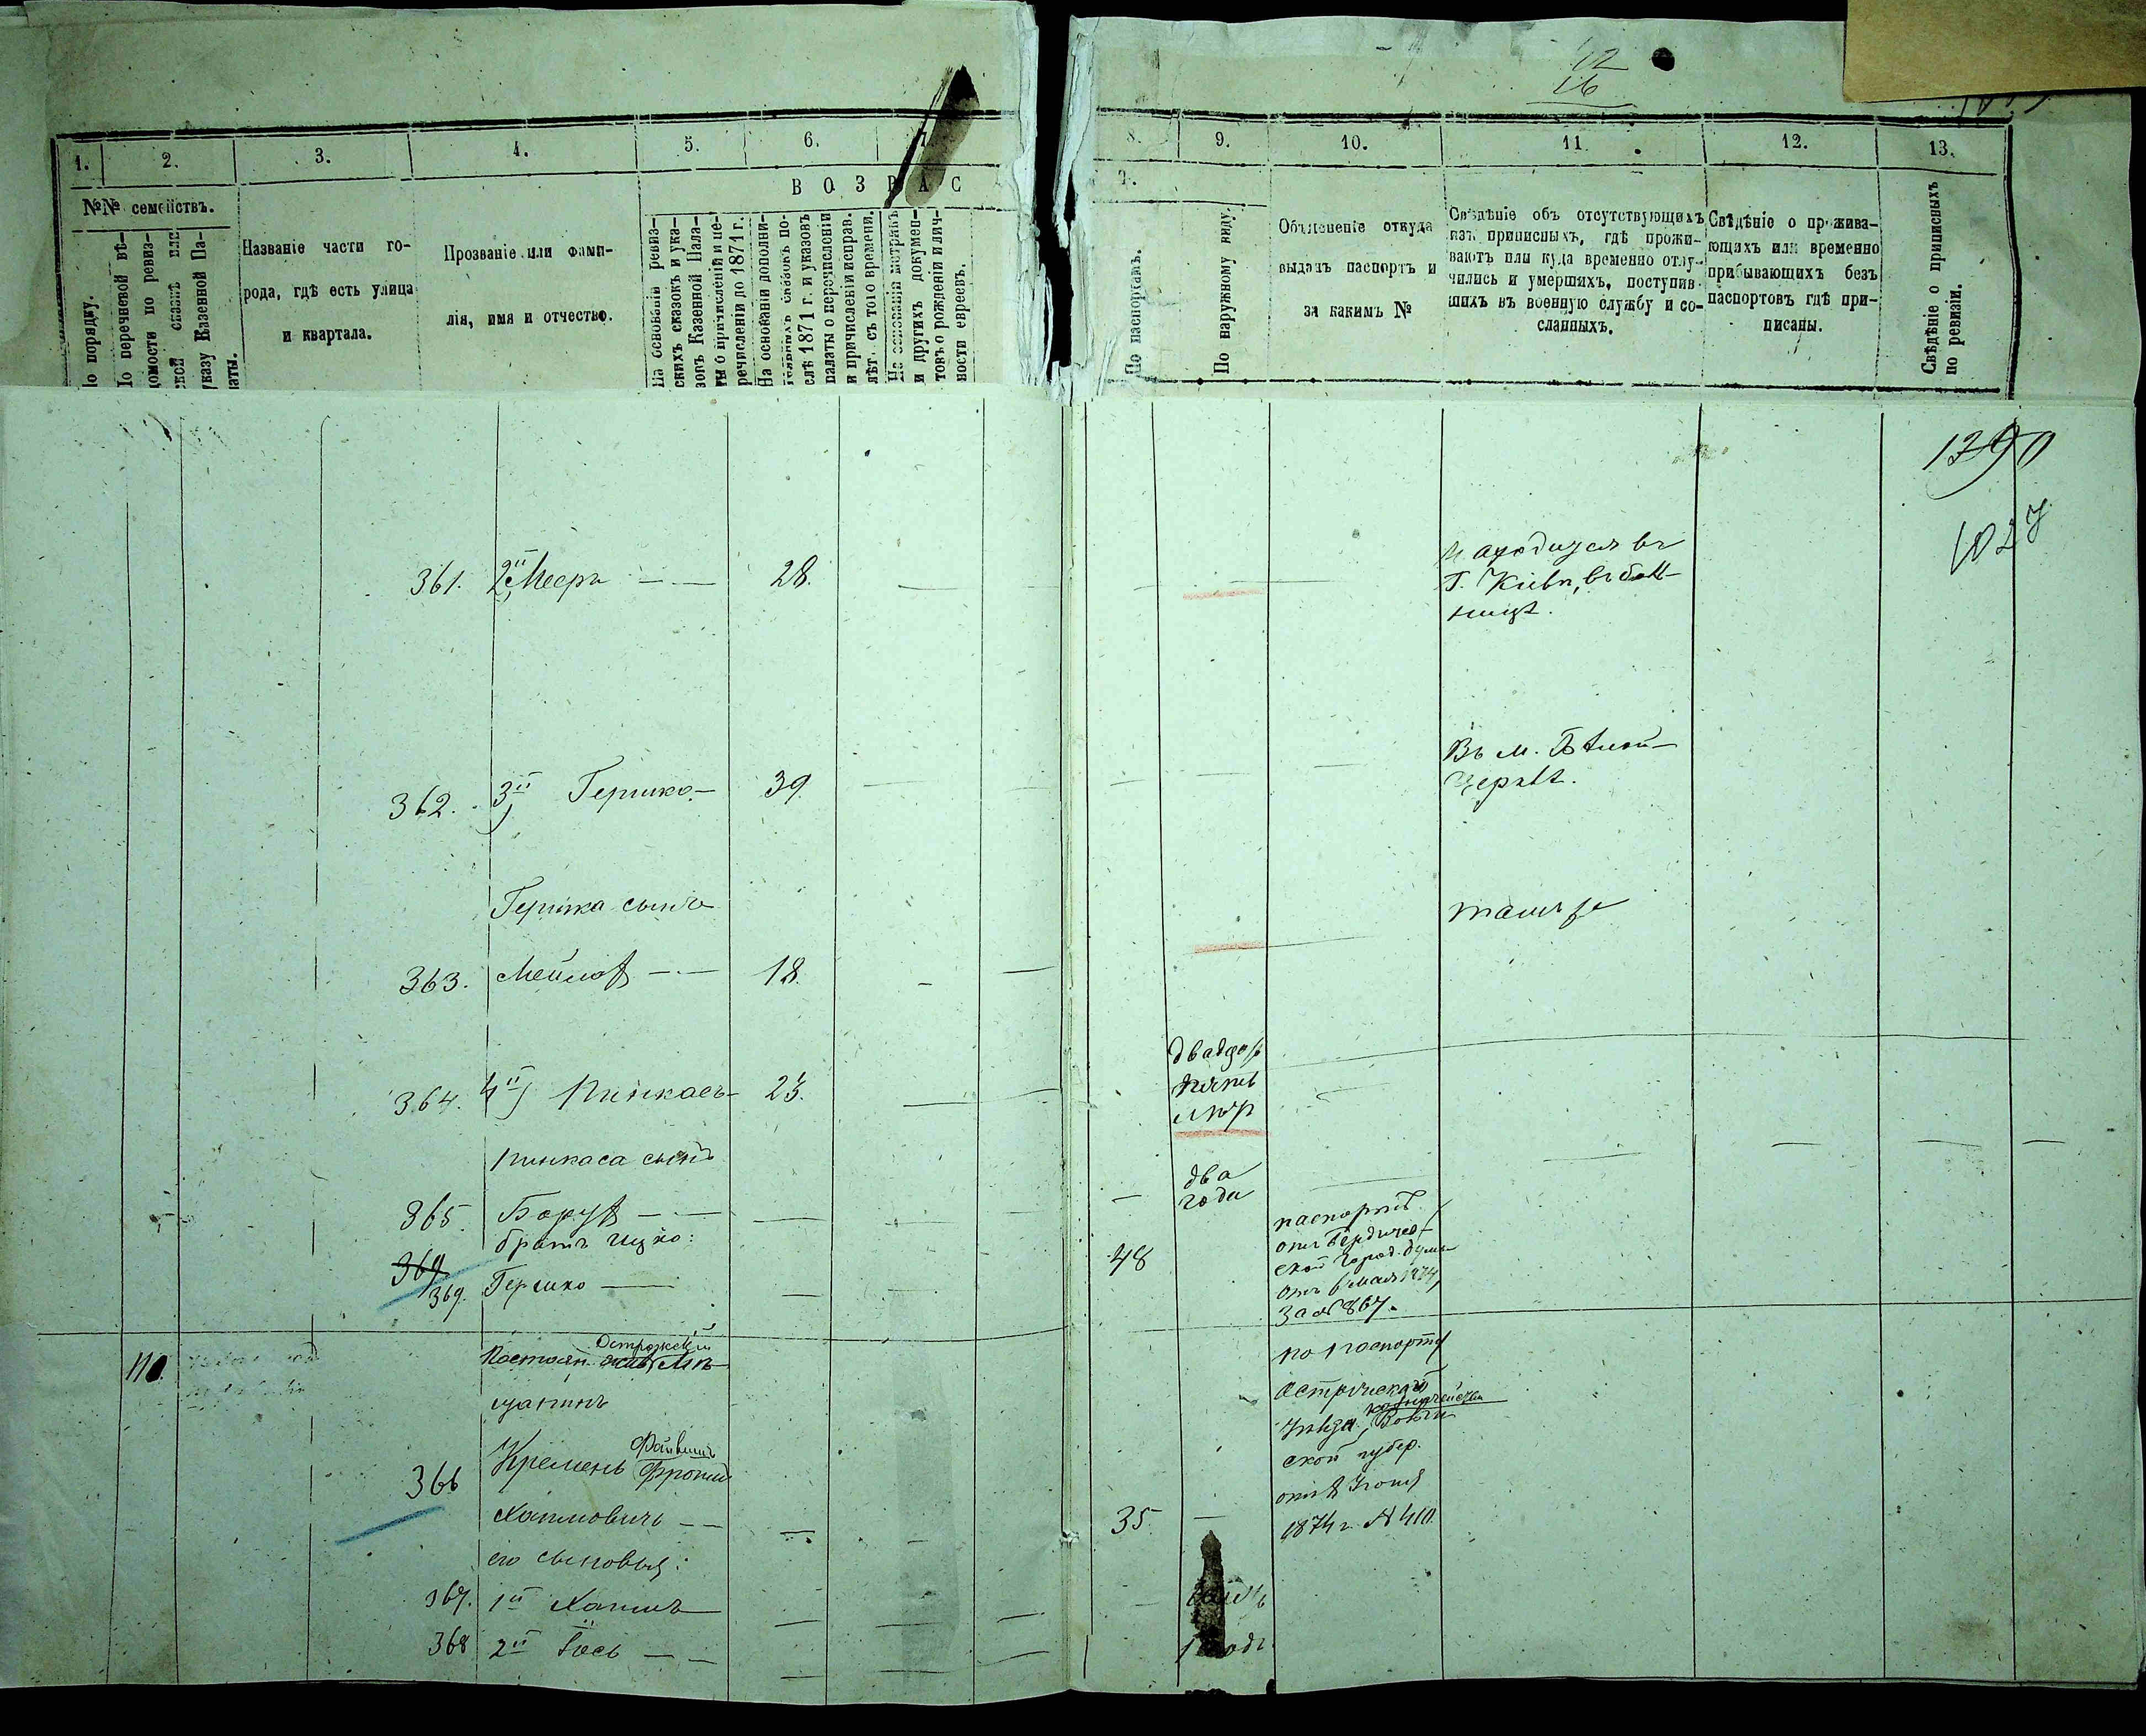 12
16
1.
2.
3.
4.
5.
6.
7.
8.
9.
10.
11.
12.
13.
В О З Р А С
Т.
№№ семействъ.
По порядку.
По перечневой вѣ-
домости по ревиз-
ской сказкѣ или
указу Казенной Па-
латы.
Названіе части го-
рода, гдѣ есть улица
и квартала.
Прозваніе или фами-
лія, имя и отчество.
На основаніи ревиз-
скихъ сказокъ и ука-
зовъ Казенной Пала-
ты о причисленіи и пе-
речисленіи до 1871 г.
На основаніи дополни-
тельныхъ сказокъ по-
слѣ 1871 г. и указовъ
палаты о перечисленіи
и причисленіи исправ.
лѣт. съ того времени.
На основаніи метрикъ
и другихъ докумен-
товъ о рожденіи и лич-
ности евреевъ.
По паспортамъ.
По наружному виду.
Объясненіе откуда
выданъ паспортъ и
за какимъ №
Свѣдѣніе объ отсутствующихъ
изъ приписныхъ, гдѣ прожи-
ваютъ или куда временно отлу-
чились и умершихъ, поступив-
шихъ въ военную службу и со-
сланныхъ.
Свѣдѣніе о прожива-
ющихъ или временно
прибывающихъ безъ
паспортовъ гдѣ при-
писаны.
Свѣдѣніе о приписныхъ
по ревизіи.
1390
1027
361. 2й Мееръ 28.
Находится въ
Г. Кіевѣ, въ бол-
ницѣ.
362. 3й Гершко 39
Въ м. Бѣлой-
Церквѣ.
Гершка сынъ
тамъ же
363. Мейлох 18.
364. 4й Пинкасъ 23.
двадца
пять
лѣт
Пинкаса сынъ
365. Борух
два
года
братъ Ицко:
369
369. Гершко
48
паспортъ
отъ Бердичев-
ской Город. думы
отъ 6 мая 1874
За № 867.
110.
Острожскій
Постоян. жив. Мѣ-
щанинъ
по паспорту
Острожскаго
казначейства
Уѣзда, Волын
ской губер.
Файвишъ
366 Кремень Фроим
Хаимовичъ 35.
1874 г. № 410.
его сыновья:
367. 1й Хаимъ
368 2й Іось